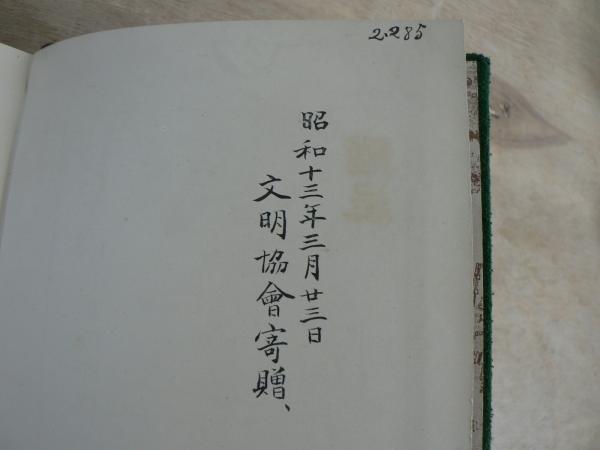 2285
昭和十三年三月廿三日
文明協會寄贈、